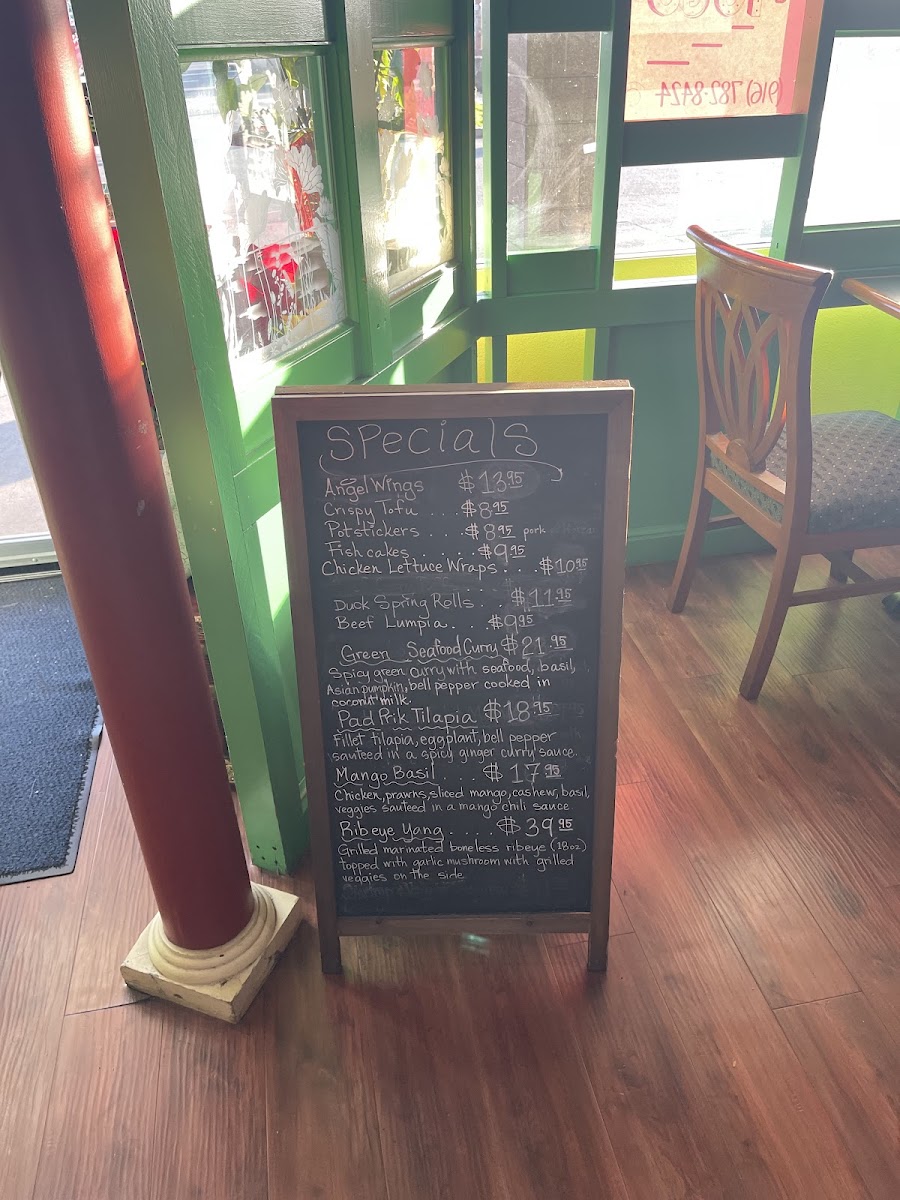 (916) 782-8424
Specials
Angel Wings $13.95
Crispy Tofu . . . . $8.95
Potstickers . . . . $8.95 pork
Fish cakes . . . . . . $9.95
Chicken Lettuce Wraps . . . $10.95
Duck Spring Rolls . . $11.95
Beef Lumpia . . . $9.95
Green Seafood Curry $21.95
Spicy green curry with seafood, basil,
Asian pumpkin, bell pepper cooked in
coconut milk.
Pad Prik Tilapia $18.95
Fillet tilapia, eggplant, bell pepper
sauteed in a spicy ginger curry sauce.
Mango Basil . . . . $17.95
Chicken, prawns, sliced mango, cashew, basil,
veggies sauteed in a mango chili sauce
Ribeye Yang . . . . . $39.95
Grilled marinated boneless ribeye (18oz)
topped with garlic mushroom with grilled
veggies on the side